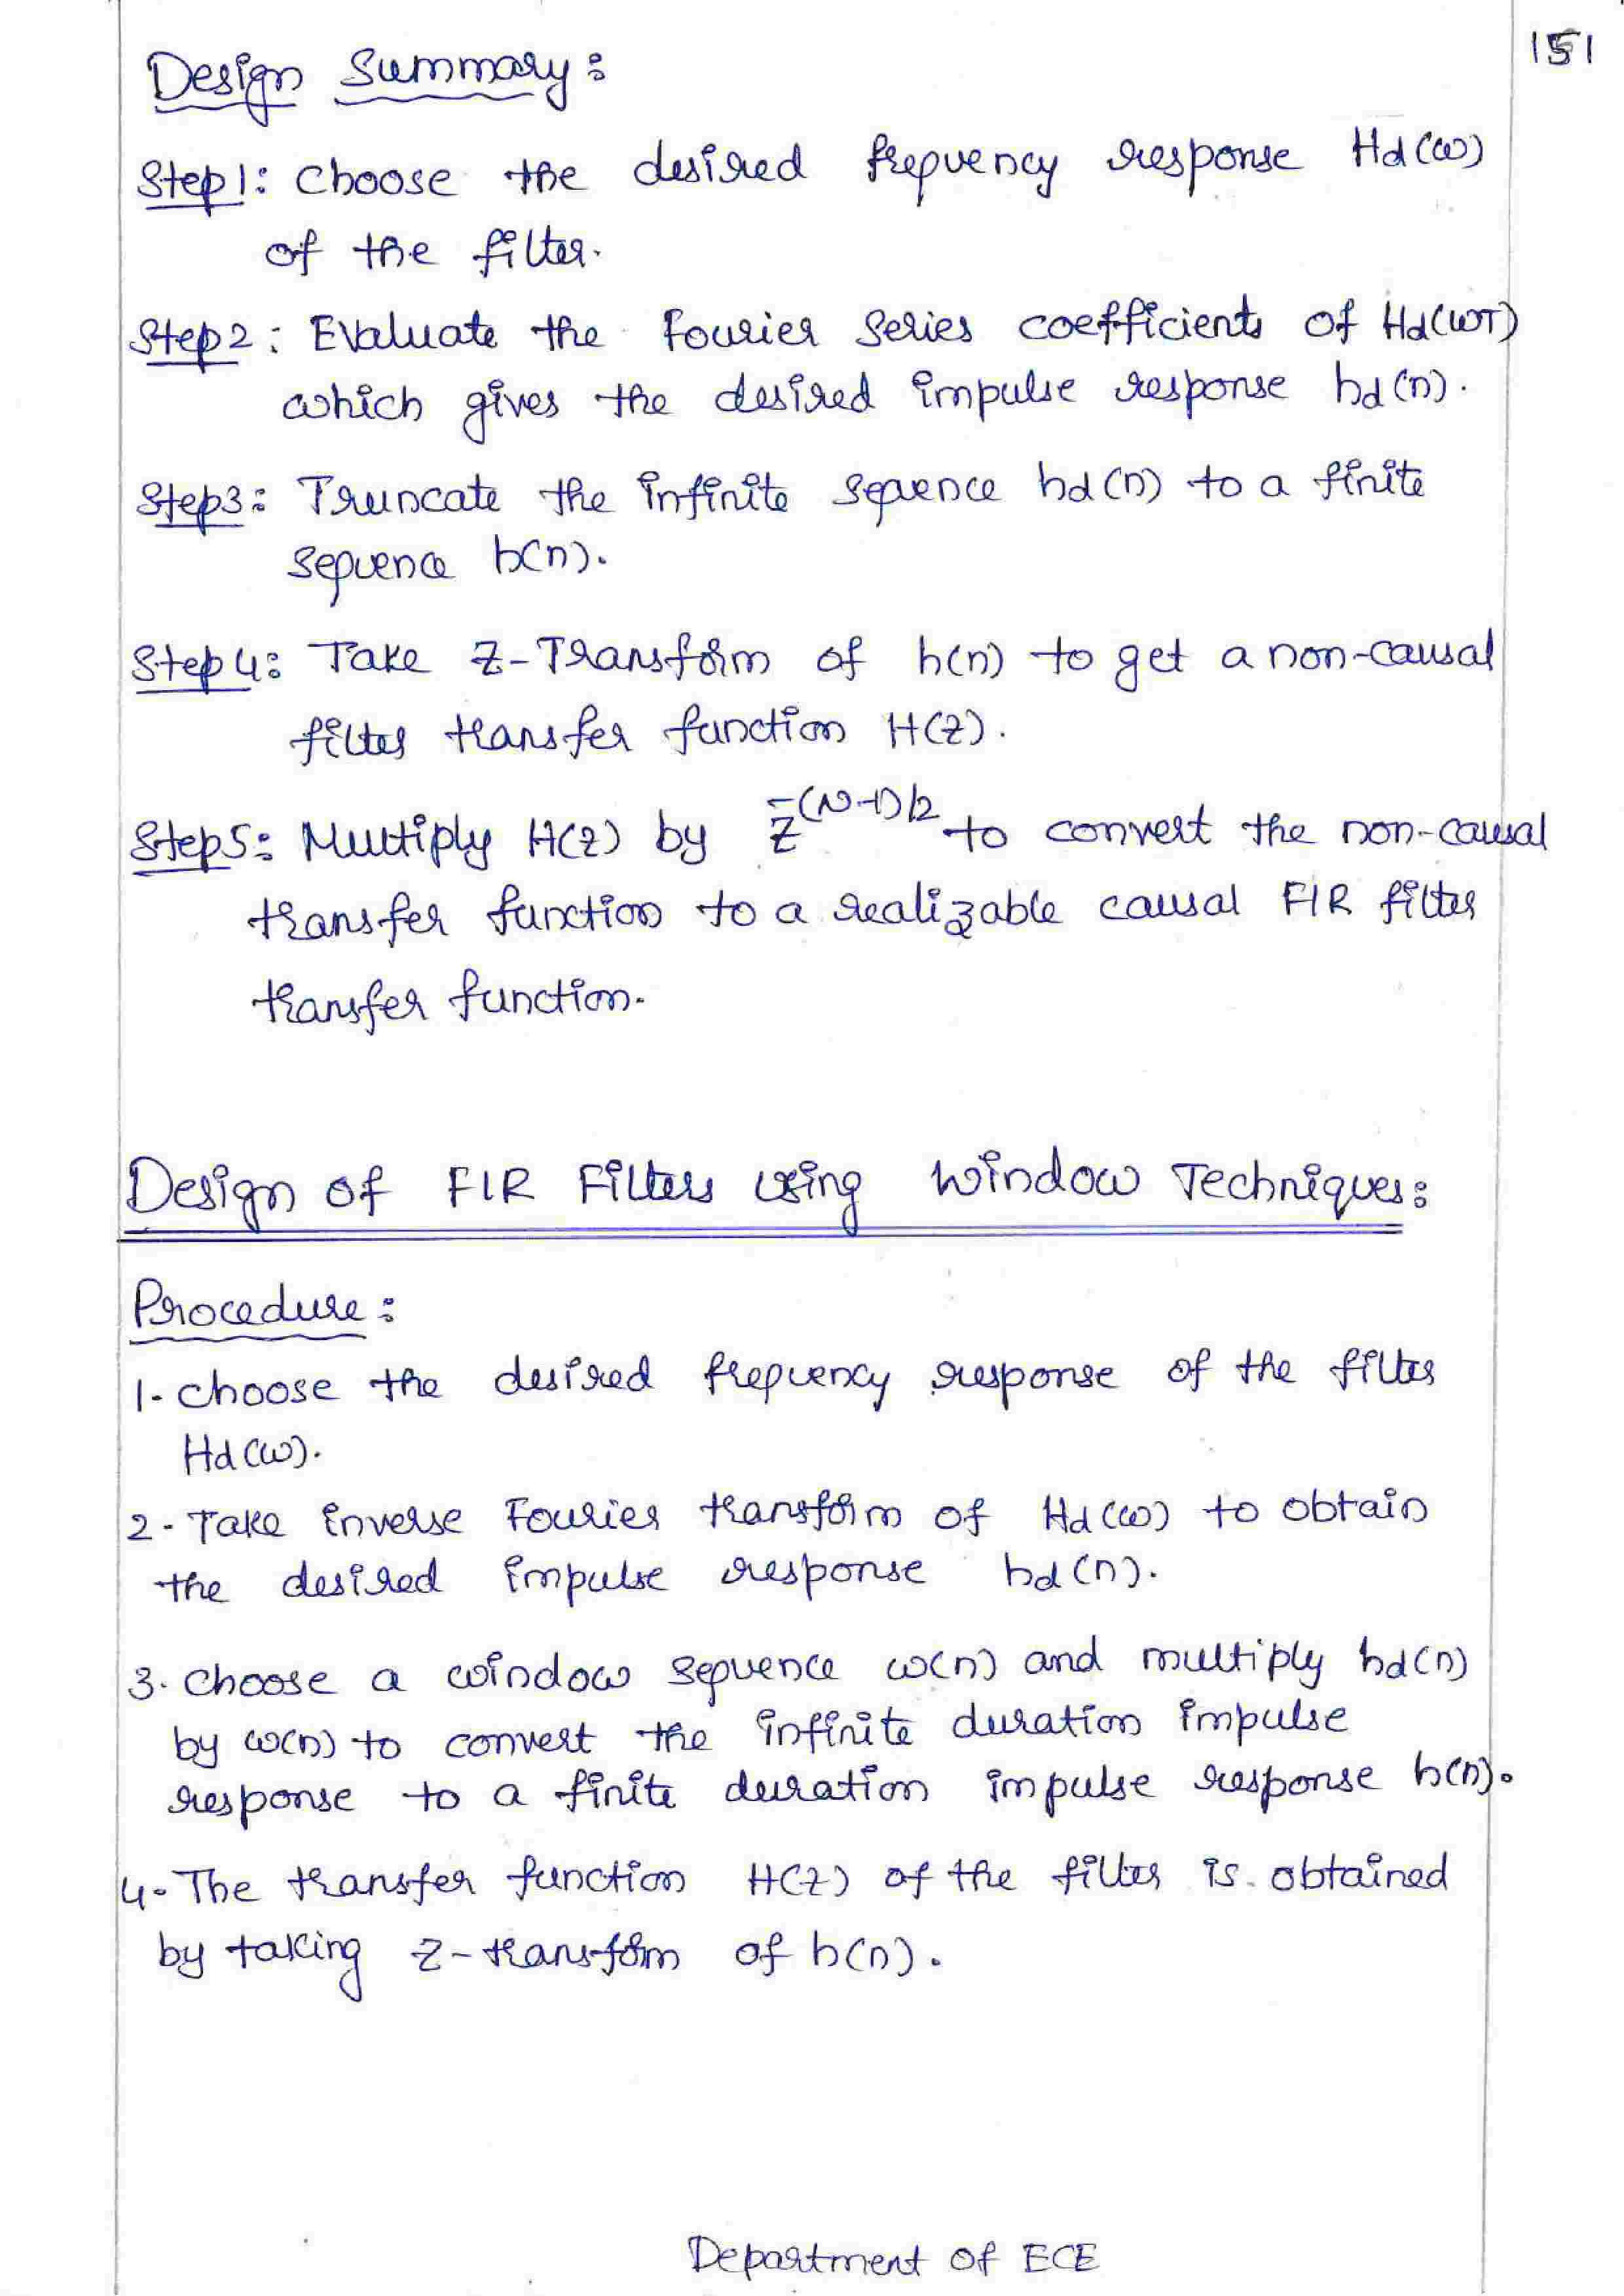 151
Design Summary:
Step1: Choose the desired frequency response Hd(ω)
of the filter.
Step2: Evaluate the Fourier Series coefficients of Hd(ωT)
which gives the desired impulse response hd(n).
Step3: Truncate the infinite sequence hd(n) to a finite
sequence h(n).
Step4: Take Z-Transform of h(n) to get a non-causal
filter transfer function H(Z).
Step5: Multiply H(z) by z^-(N-1)/2 to convert the non-causal
transfer function to a realizable causal FIR filter
transfer function.
Design of FIR Filters using Window Techniques:
Procedure:
1. choose the desired frequency response of the filter
Hd(ω).
2. Take inverse Fourier transform of Hd(ω) to obtain
the desired impulse response hd(n).
3. Choose a window sequence ω(n) and multiply hd(n)
by ω(n) to convert the infinite duration impulse
response to a finite duration impulse response h(n).
4. The transfer function H(z) of the filter is obtained
by taking z-transform of h(n).
Department of ECE